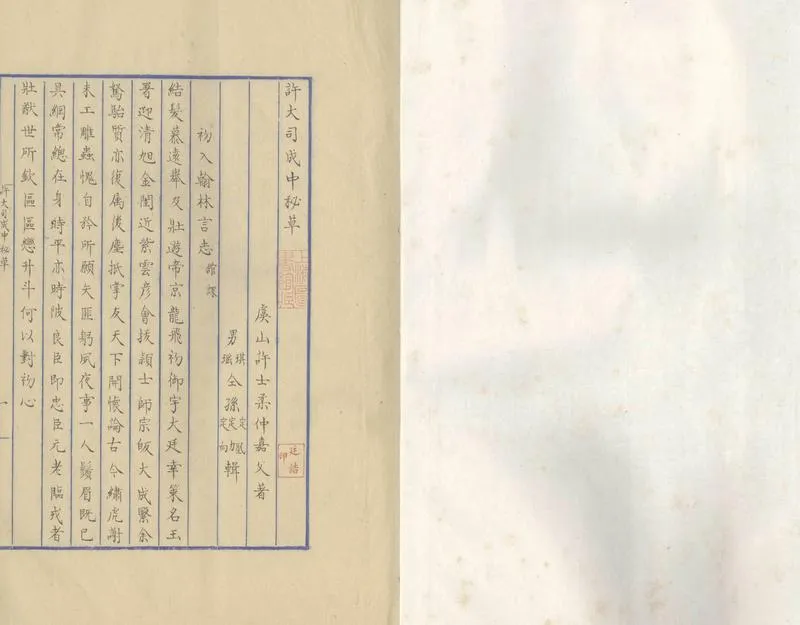 許大司成中秘草
虞山許士柔仲嘉父著
男琪瑶仝孫定定力定向輯
初入翰林言志 館課
結髮慕遠舉及壯遊帝京龍飛初御宇大廷幸策名玉
署迎清旭金閨近紫雲彥會拔頴士師宗皈大成繄余
駑駘質亦復属後塵抵掌友天下開懷論古今繡虎謝
未工雕蟲愧自矜所願矢匪躬夙夜事一人鬚眉既已
具綱常總在身時平亦時陂良臣即忠臣元老臨戎者
壯猷世所欽區區戀升斗何以對初心
許大司成中秘草
一